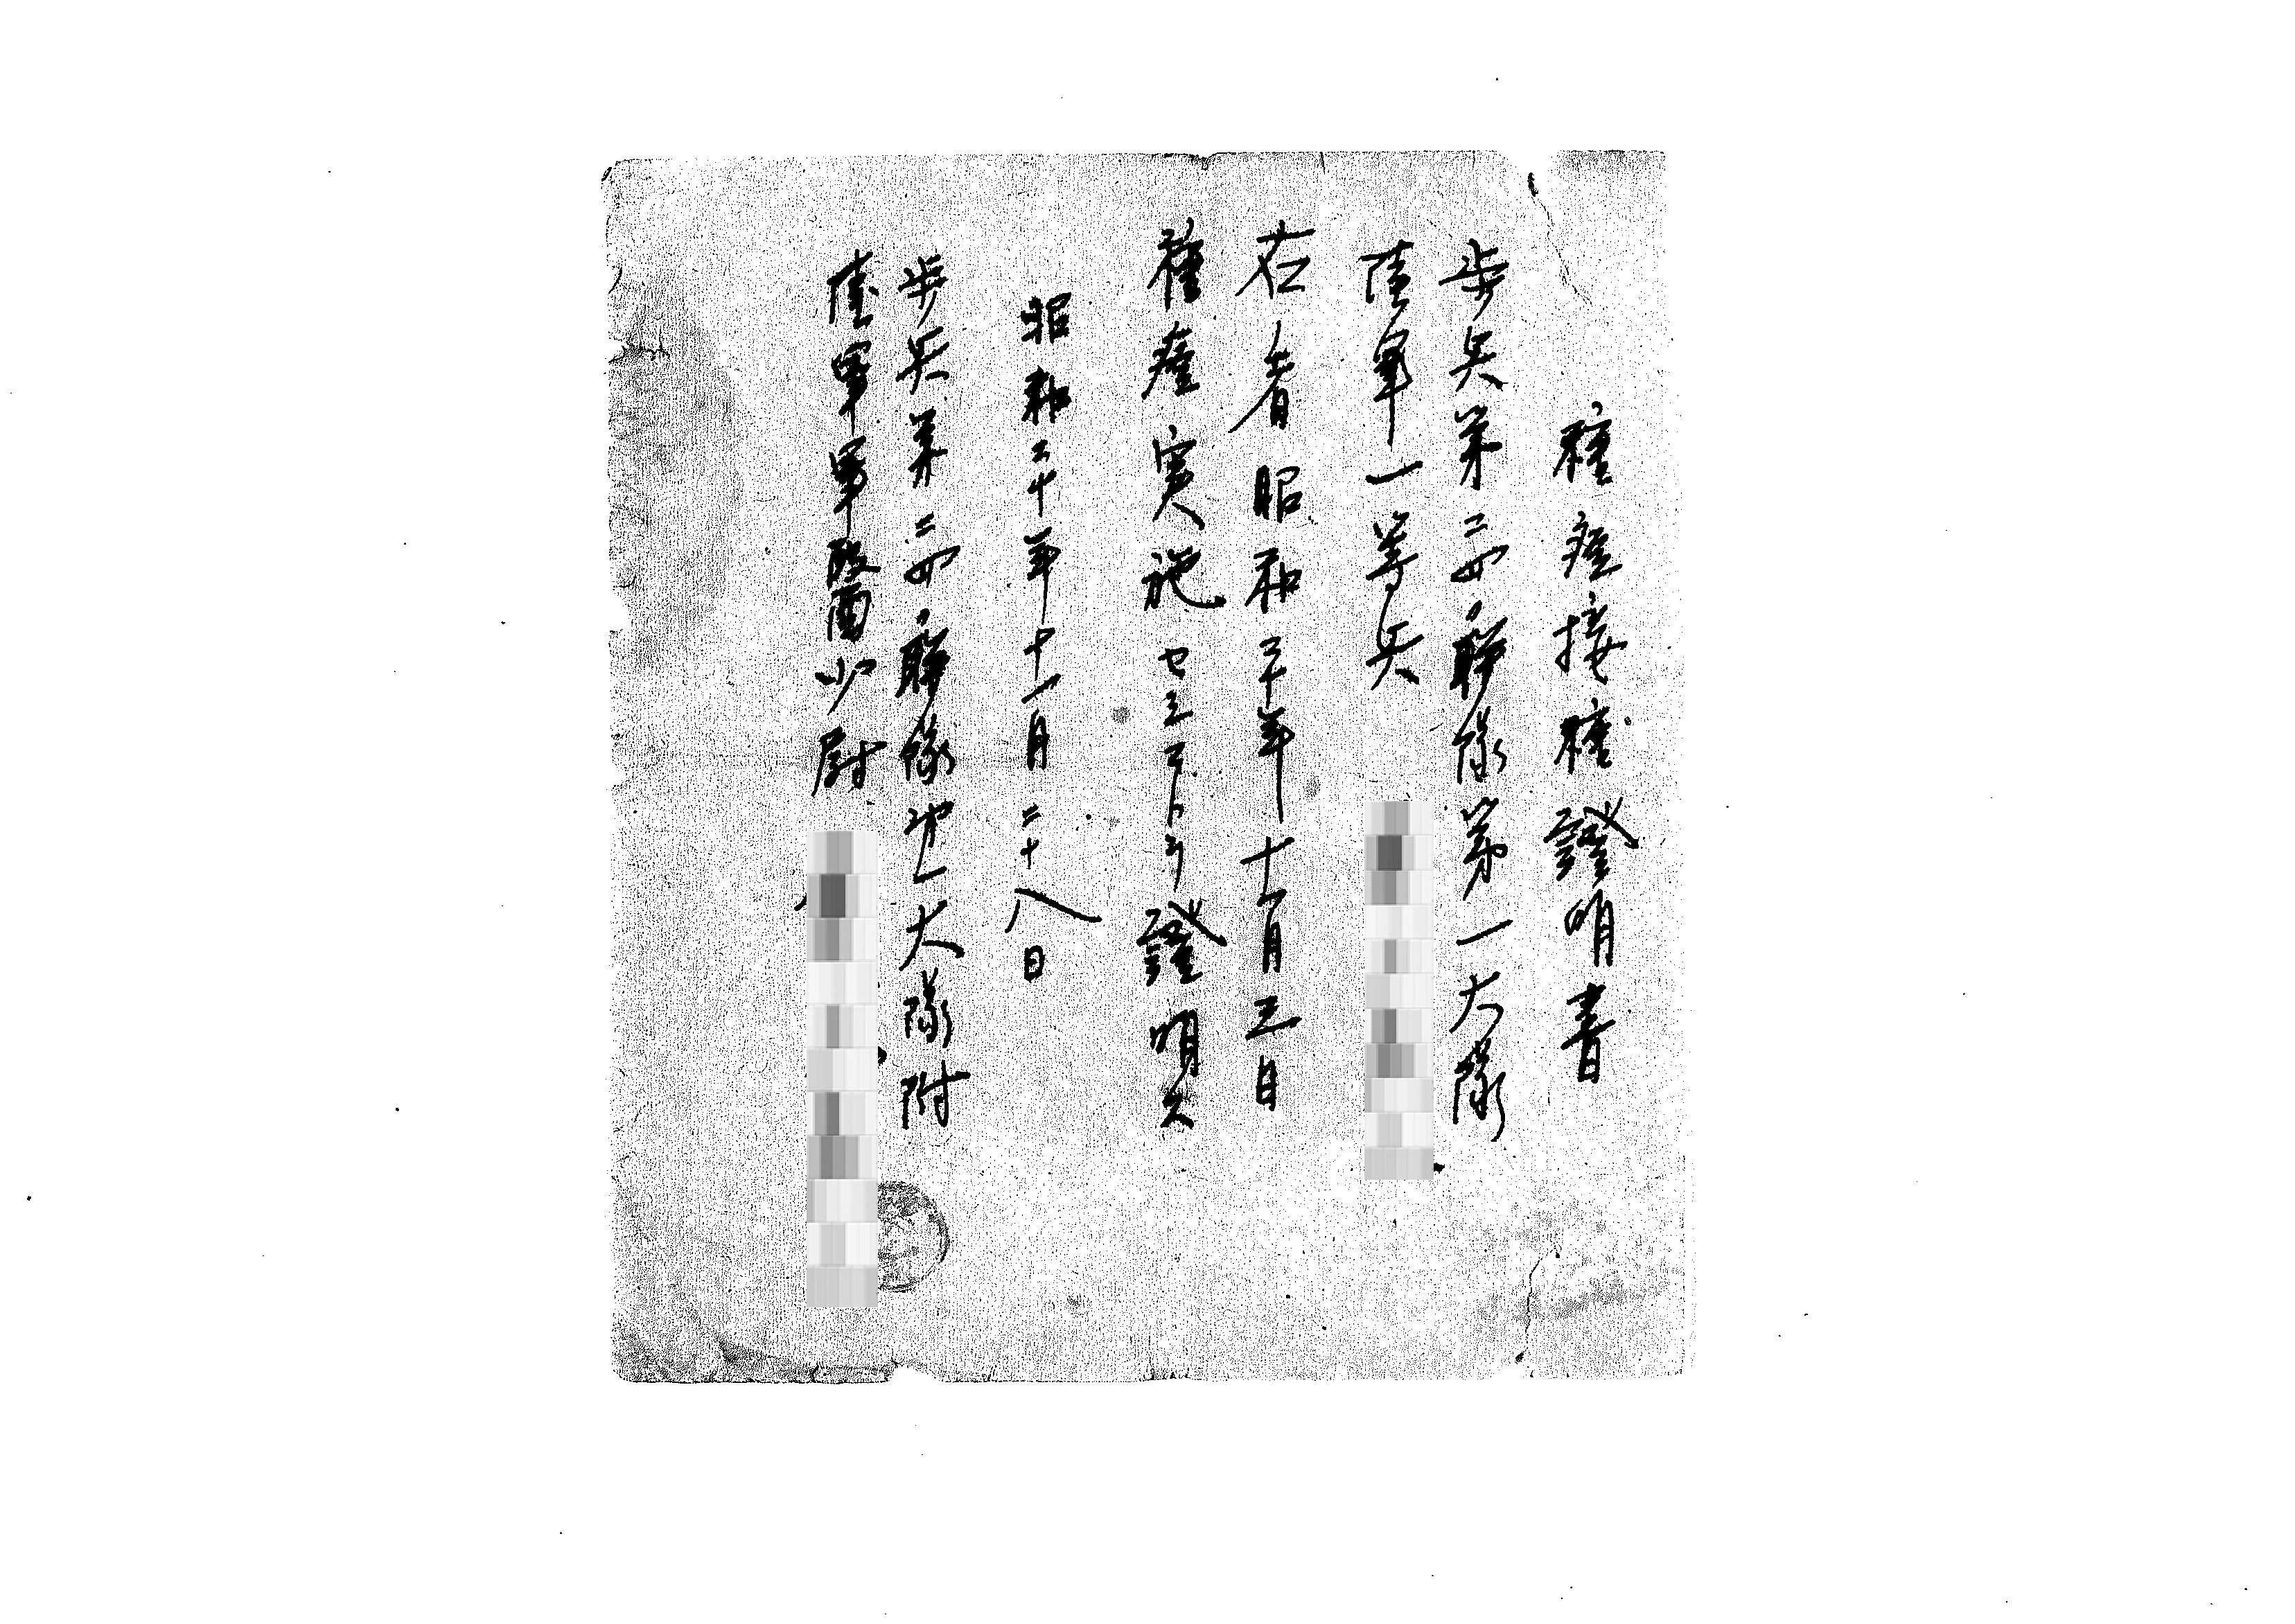 種痘接種證明書
歩兵第二四聯隊第一大隊
陸軍一等兵
右者昭和二十年十一月三日
種痘実施セシコトヲ證明ス
昭和二十年十一月二十八日
歩兵第二四聯隊第一大隊附
陸軍軍醫少尉